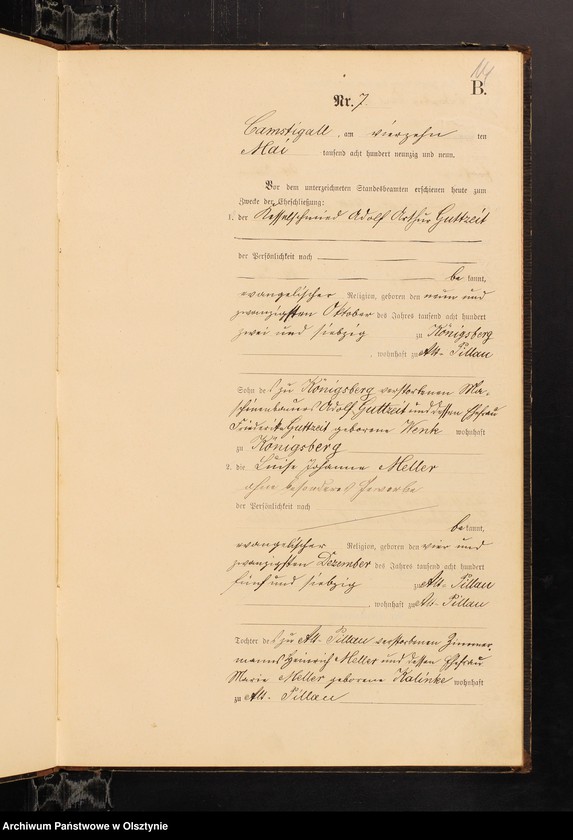 B.
Nr. 7
Camstigall, am vierzehn ten
Mai tausend acht hundert neunzig und neun.
Vor dem unterzeichneten Standesbeamten erschienen heute zum
Zwecke der Eheschließung:
1. der Kesselschmied Adolf Arthur Guttzeit
der Persönlichkeit nach
bekannt,
evangelischer Religion, geboren den neun und
zwanzigsten Oktober des Jahres tausend acht hundert
zwei und siebzig zu Königsberg
, wohnhaft zu Alt-Pillau
Sohn des zu Königsberg verstorbenen Ma-
schinenbauers Adolf Guttzeit und dessen Ehefrau
Friederike Guttzeit geborene Wenk wohnhaft
zu Königsberg
2. die Luise Johanne Meller
ohne besonderes Gewerbe
der Persönlichkeit nach
bekannt,
evangelischer Religion, geboren den vier und
zwanzigsten Dezember des Jahres tausend acht hundert
fünf und siebzig zu Alt-Pillau
, wohnhaft zu Alt-Pillau
Tochter des zu Alt-Pillau verstorbenen Zimmer-
manns Heinrich Meller und dessen Ehefrau
Marie Meller geborene Kalinke wohnhaft
zu Alt-Pillau
Archiwum Państwowe w Olsztynie